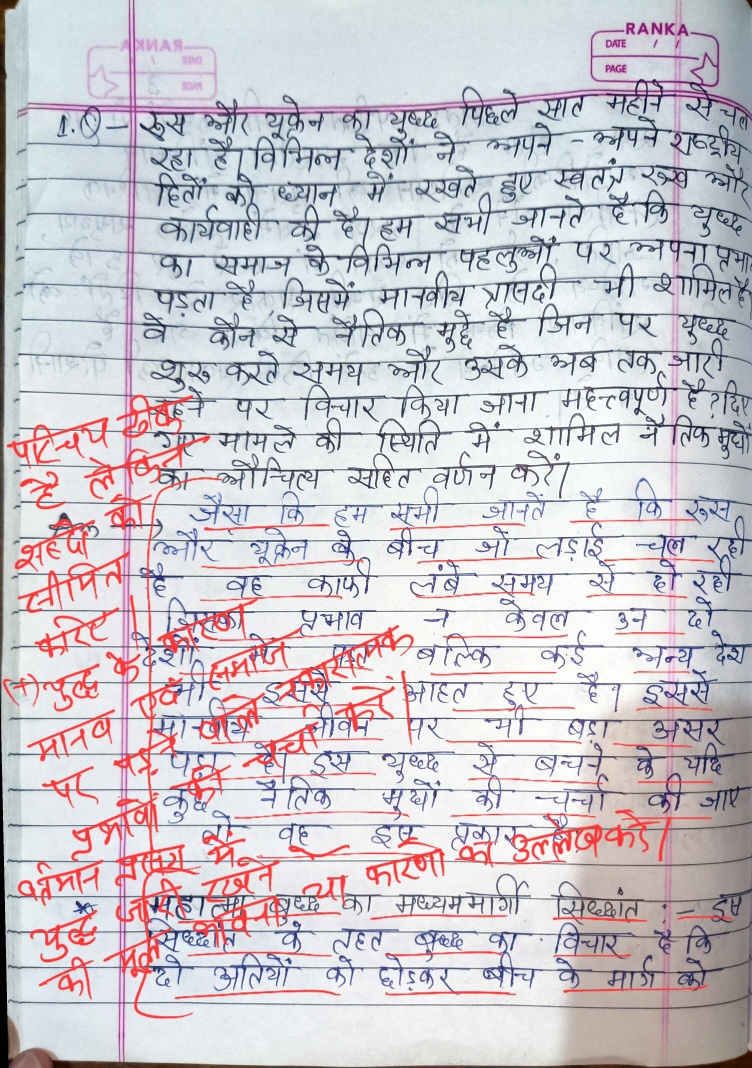 RANKA
DATE / /
PAGE
1.Q - रूस और यूक्रेन का युध्द पिछले सात महीने से चल
रहा है। विभिन्न देशों ने अपने - अपने राष्ट्रीय
हितों को ध्यान में रखते हुए स्वतंत्र रुख और
कार्यवाही की है। हम सभी जानते है कि युध्द
का समाज के विभिन्न पहलुओं पर अपना प्रभा
पड़ता है, जिसमें मानवीय त्रासदी भी शामिल है
वे कौन से नैतिक मुद्दे है जिन पर युध्द
शुरू करते समय और उसके अब तक जारी
रहने पर विचार किया जाना महत्वपूर्ण है? दिए
गए मामले की स्थिति में शामिल नैतिक मुद्दों
का औचित्य सहित वर्णन करें।
जैसा कि हम सभी जानतें है कि रूस
और यूक्रेन के बीच जो लड़ाई चल रही
है वह काफी लंबे समय से हो रही
जिसका प्रभाव न केवल उन दो
देशों बल्कि कई अन्य देश
भी इससे आहत हुए है। इससे
मानवीय जीवन पर भी बड़ा असर
पड़ा है। इस युध्द से बचने के यदि
कुछ नैतिक मुद्दों की चर्चा की जाए
तो वह इस प्रकार है
महात्मा बुध्द का मध्यममार्गी सिध्दांत :- इस
सिध्दांत के तहत बुध्द का विचार है कि
दो अतियों को छोड़कर बीच के मार्ग को
परिचय ठीक
है लेकिन
शब्दों को
सीमित
करिए।
(+) युद्ध के कारण
मानव एवं समाज
पर पड़ने वाले नकारात्मक
प्रभावों की चर्चा करें।
वर्तमान समय में
युद्ध जारी रखने
की मूल भावना या कारणों का उल्लेख करें।